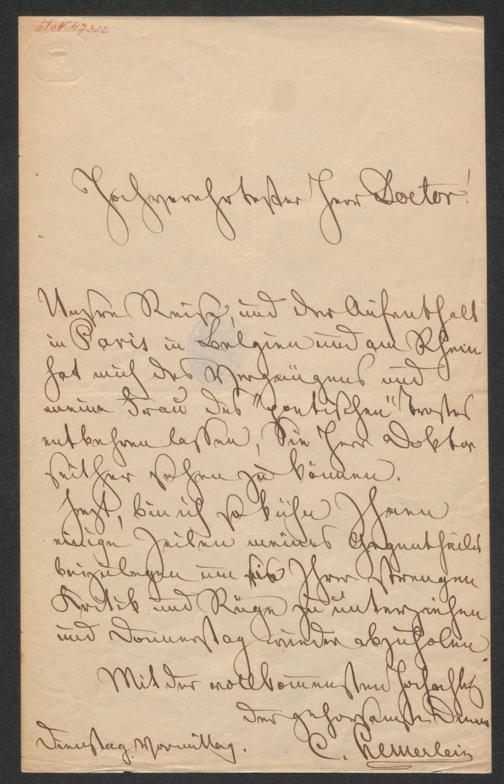 Hochverehrtester Herr Doctor!
Unsre Reise, und der Aufenthalt
in Paris in Belgien und am Rhein
hat mich des Vergnügens und
meine Frau des "poetischen" Trostes
entbehren lassen, Sie Herr Doktor
seither sehen zu können.
Jezt, bin ich so kühn Ihnen
einige Zeilen meines Gegentheils
beizulegen um sie Ihrer strengen
Kritik und Rüge zu unterziehen
und Donnerstag wieder abzuholen.
Mit der vollkommensten Hochachtg
der gehorsamste Diener
Dienstag Vormittag.